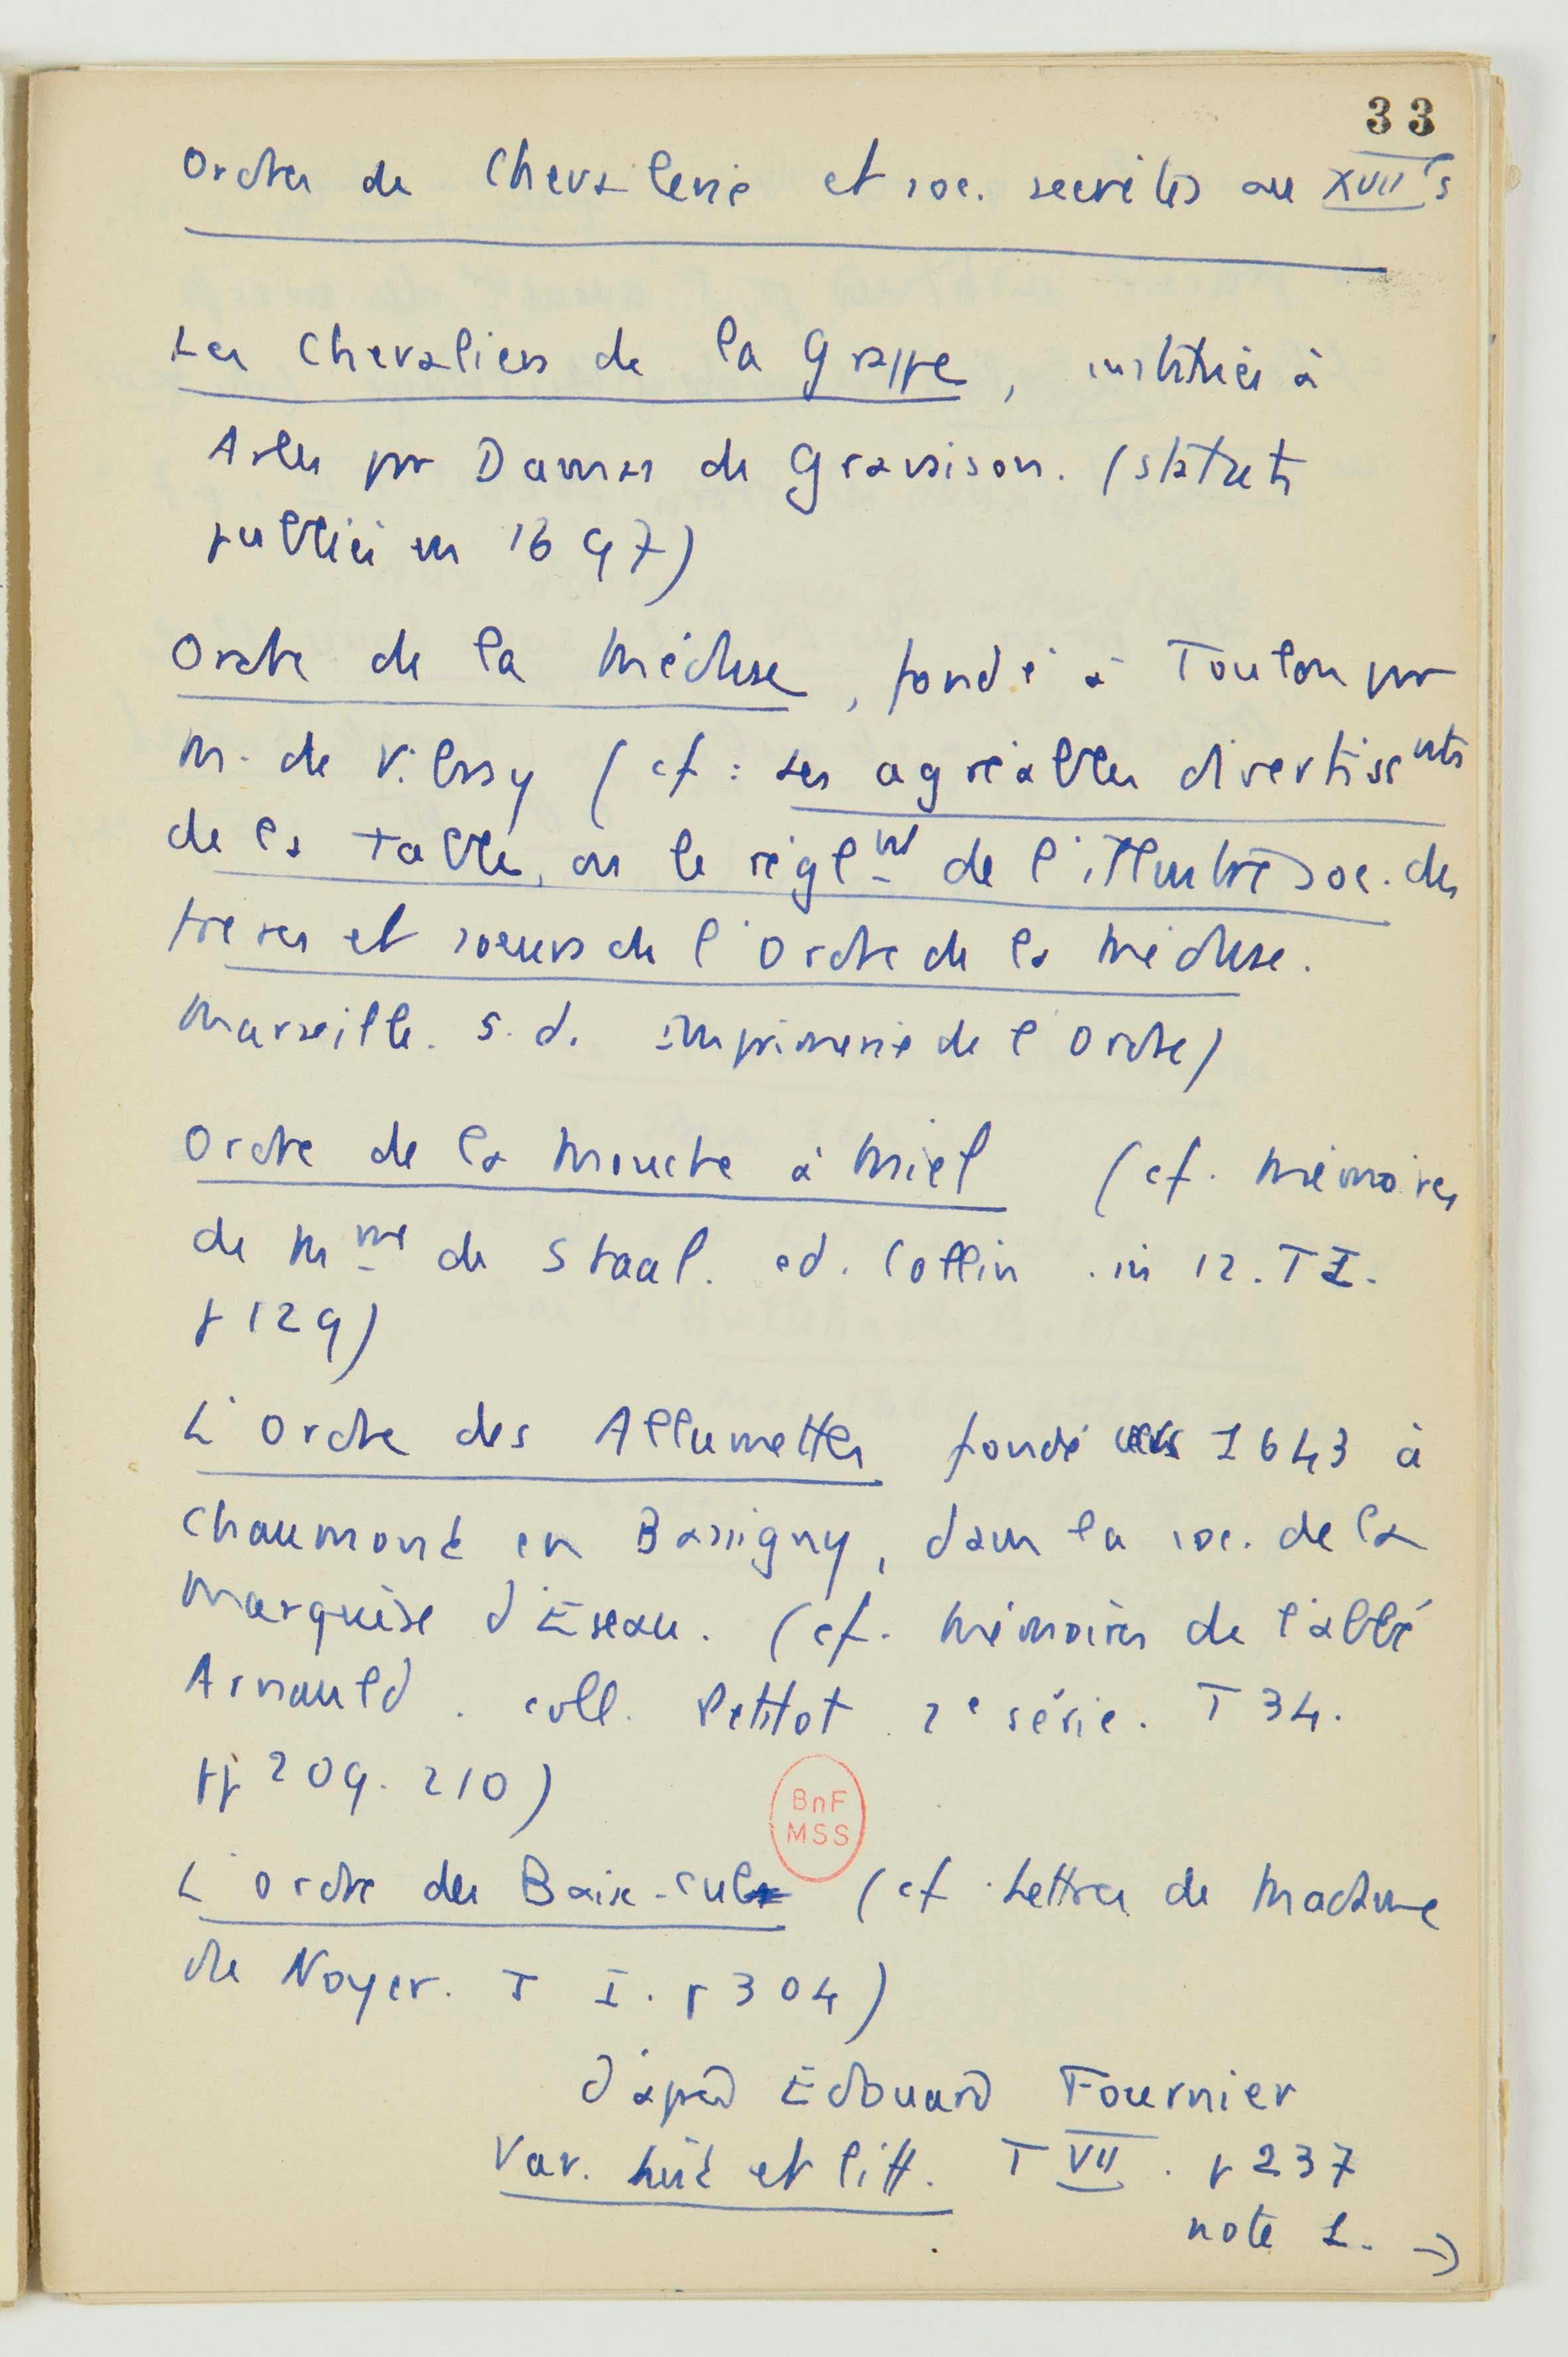 33
Ordres de Chevalerie et soc. secrètes au XVIIe s
Les Chevaliers de la Grappe, institués à
Arles par Damas de Gravaison. (statuts
publiés en 1697)
Ordre de la Méduse, fondé à Toulon par
M. de Vibray (cf : Les agréables divertissnts
de la Table, ou le règlnt de l'illustre soc. des
frères et soeurs de l'Ordre de la Méduse.
Marseille. s.d. imprimerie de l'Ordre)
Ordre de la Mouche à Miel (cf. Mémoires
de Mme de Staal. ed. Collin. in 12. T I.
p 129)
L'Ordre des Allumettes fondé vers 1643 à
Chaumont en Bassigny, dans la soc. de la
Marquise d'Eseau. (cf. Mémoires de l'abbé
Arnauld. coll. Petitot 2e série. T 34.
pp 209. 210)
L'ordre des Baise-cul (cf Lettres de Madame
de Noyer. T I. p 304)
BnF
MSS
d'après Edouard Fournier
Var. hist et litt. T VII. p 237
note 1. →